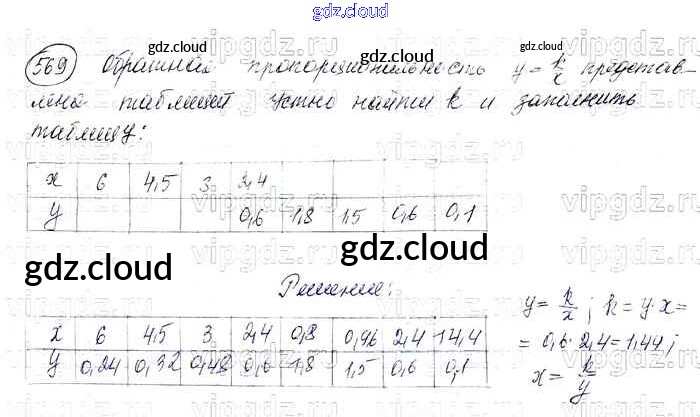 gdz.cloud
gdz.cloud gdz.cloud
569 Обратная пропорциональность y = k/x представ-
лена таблицей Устно найти k и заполнить
таблицу:
x 6 4,5 3 2,4
y 0,6 1,8 1,5 0,6 0,1
gdz.cloud
gdz.cloud gdz.cloud
Решение:
x 6 4,5 3 2,4 0,8 0,96 2,4 14,4
y 0,24 0,32 0,48 0,6 1,8 1,5 0,6 0,1
y = k/x; k = y·x =
= 0,6·2,4 = 1,44;
x = k/y